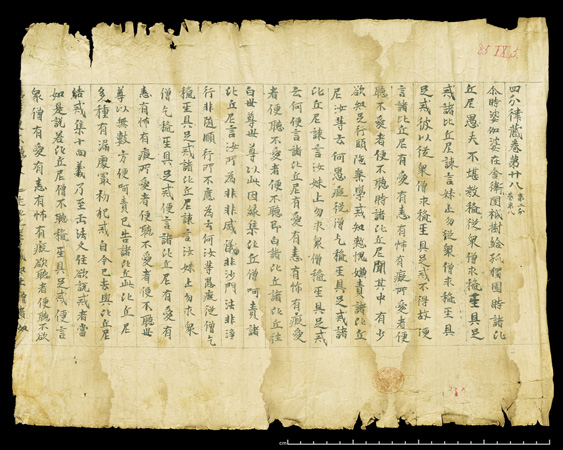 四分律藏卷第廿八
尒時婆伽婆在舍衛國祇樹給孤獨園時諸比
丘尼愚夫不堪教授從衆僧求授具足
戒諸比丘尼諫言妹上勿從衆僧求授具
足戒彼以從衆僧求授具足戒不得故便
言諸比丘尼有愛有恚有怖有癡所愛者便
聽不愛者便不聽時諸比丘尼聞其中有少
欲知足行頭陀樂學戒知慙愧嫌責諸比丘
尼汝等云何愚癡從僧乞授具足戒諸
比丘尼諫言汝妹上勿求衆僧授具足戒
云何便言諸比丘尼有愛有恚有怖有癡愛
者便聽不愛者便不聽即白諸比丘諸比丘往
白世尊世尊以此因緣集比丘僧呵責諸
比丘尼言汝所為非非威儀非沙門法非淨
行非隨順行所不應為云何汝等愚癡從僧乞
授具足戒諸比丘尼諫言汝妹上勿求衆
僧乞授具足戒便言諸比丘尼有愛有
恚有怖有癡所愛者便聽不愛者便不聽世
尊以無數方便呵責已告諸比丘此比丘尼
多種有漏處最初犯戒自今已去與比丘尼
結戒集十句義乃至正法久住欲說戒者當
如是說若比丘尼僧不聽授具足戒便言
衆僧有愛有恚有怖有癡欲聽者便聽不欲